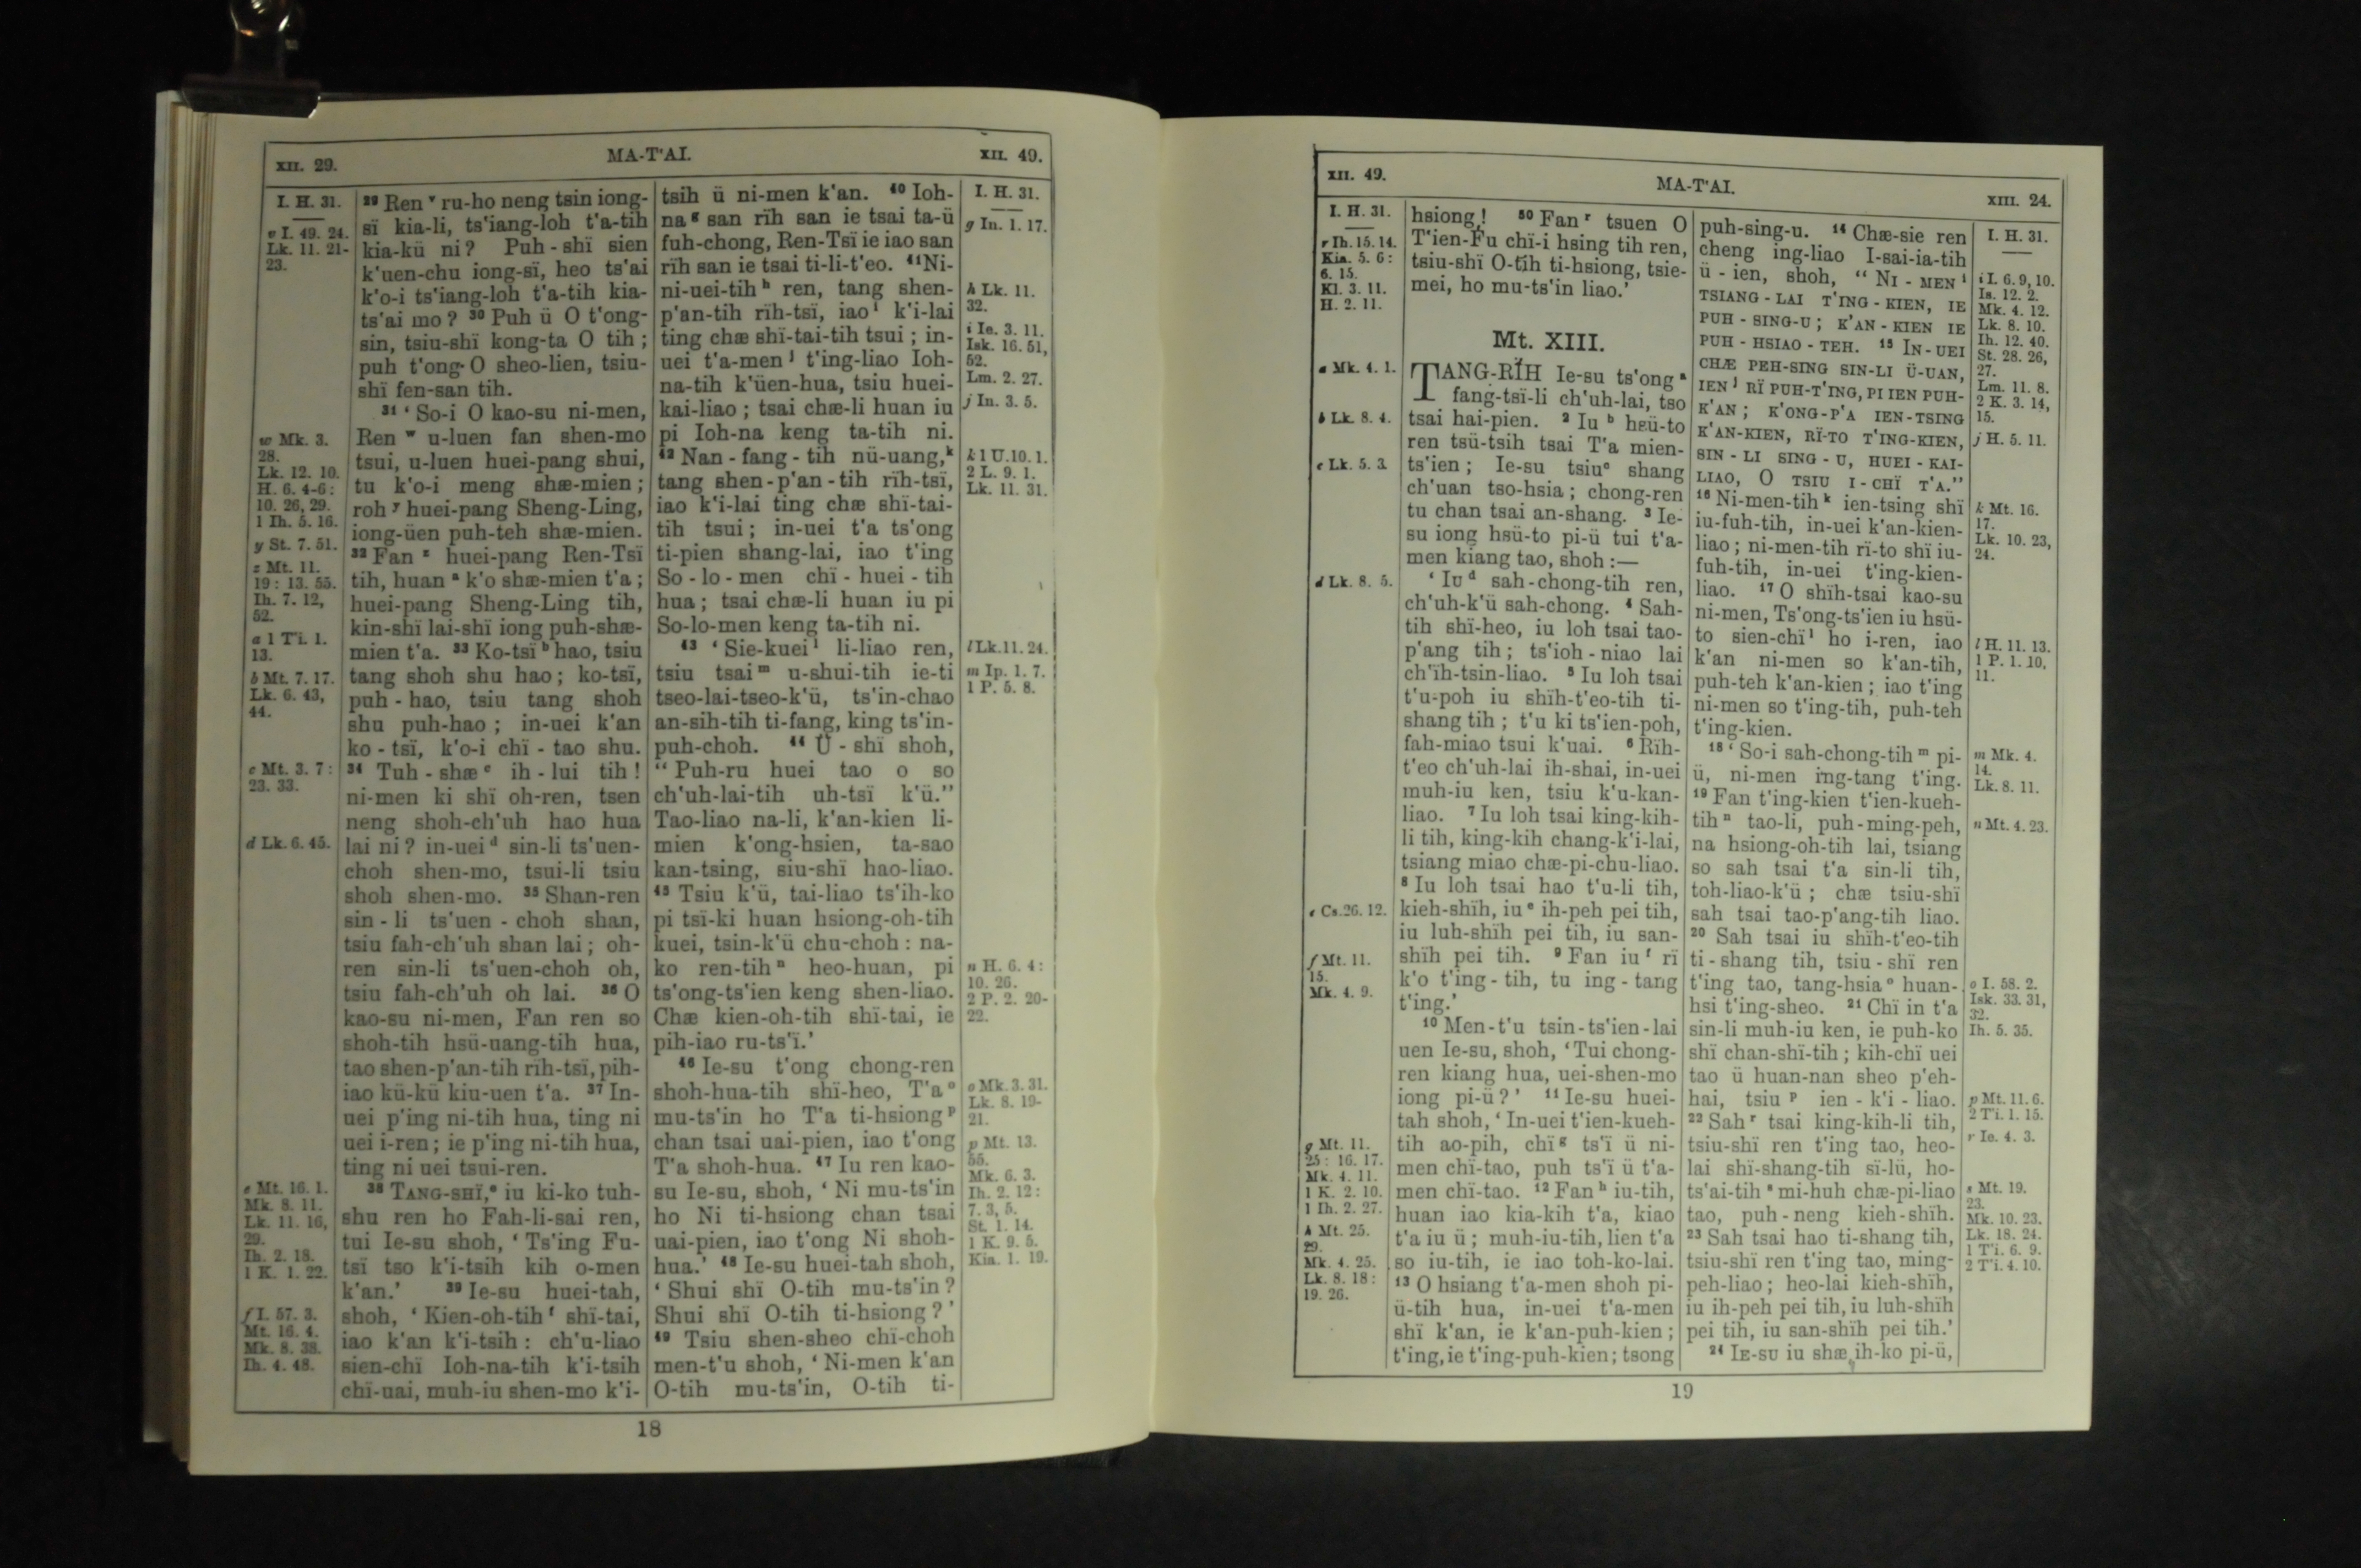 XII. 29.
MA-T'AI.
XII. 49.
I. H. 31.
v I. 49. 24.
Lk. 11. 21-
23.
w Mk. 3.
28.
Lk. 12. 10.
H. 6. 4-6:
10. 26, 29.
1 Ih. 5. 16.
y St. 7. 51.
z Mt. 11.
19: 13. 55.
Ih. 7. 12,
52.
a 1 Ti. 1.
13.
b Mt. 7. 17.
Lk. 6. 43,
44.
c Mt. 3. 7:
23. 33.
d Lk. 6. 45.
e Mt. 16. 1.
Mk. 8. 11.
Lk. 11. 16,
29.
Ih. 2. 18.
1 K. 1. 22.
f I. 57. 3.
Mt. 16. 4.
Mk. 8. 38.
Ih. 4. 48.
29 Ren v ru-ho neng tsin iong-
sï kia-li, ts'iang-loh t'a-tih
kia-kü ni? Puh-shï sien
k'uen-chu iong-sï, heo ts'ai
k'o-i ts'iang-loh t'a-tih kia-
ts'ai mo? 30 Puh ü O t'ong-
sin, tsiu-shï kong-ta O tih;
puh t'ong-O sheo-lien, tsiu-
shï fen-san tih.
31 'So-i O kao-su ni-men,
Ren w u-luen fan shen-mo
tsui, u-luen huei-pang shui,
tu k'o-i meng shæ-mien;
roh y huei-pang Sheng-Ling,
iong-üen puh-teh shæ-mien.
32 Fan z huei-pang Ren-Tsï
tih, huan a k'o shæ-mien t'a;
huei-pang Sheng-Ling tih,
kin-shï lai-shï iong puh-shæ-
mien t'a. 33 Ko-tsï b hao, tsiu
tang shoh shu hao; ko-tsï,
puh-hao, tsiu tang shoh
shu puh-hao; in-uei k'an
ko-tsï, k'o-i chï-tao shu.
34 Tuh-shæ c ih-lui tih!
ni-men ki shï oh-ren, tsen
neng shoh-ch'uh hao hua
lai ni? in-uei d sin-li ts'uen-
choh shen-mo, tsui-li tsiu
shoh shen-mo. 35 Shan-ren
sin-li ts'uen-choh shan,
tsiu fah-ch'uh shan lai; oh-
ren sin-li ts'uen-choh oh,
tsiu fah-ch'uh oh lai. 36 O
kao-su ni-men, Fan ren so
shoh-tih hsü-uang-tih hua,
tao shen-p'an-tih rïh-tsï, pih-
iao kü-kü kiu-uen t'a. 37 In-
uei p'ing ni-tih hua, ting ni
uei i-ren; ie p'ing ni-tih hua,
ting ni uei tsui-ren.
38 TANG-SHÏ, e iu ki-ko tuh-
shu ren ho Fah-li-sai ren,
tui Ie-su shoh, 'Ts'ing Fu-
tsï tso k'i-tsih kih o-men
k'an.' 39 Ie-su huei-tah,
shoh, 'Kien-oh-tih f shï-tai,
iao k'an k'i-tsih: ch'u-liao
sien-chï Ioh-na-tih k'i-tsih
chï-uai, muh-iu shen-mo k'i-
tsih ü ni-men k'an. 40 Ioh-
na g san rïh san ie tsai ta-ü
fuh-chong, Ren-Tsï ie iao san
rïh san ie tsai ti-li-t'eo. 41 Ni-
ni-uei-tih h ren, tang shen-
p'an-tih rïh-tsï, iao i k'i-lai
ting chæ shï-tai-tih tsui; in-
uei t'a-men j t'ing-liao Ioh-
na-tih k'üen-hua, tsiu huei-
kai-liao; tsai chæ-li huan iu
pi Ioh-na keng ta-tih ni.
42 Nan-fang-tih nü-uang, k
tang shen-p'an-tih rïh-tsï,
iao k'i-lai ting chæ shï-tai-
tih tsui; in-uei t'a ts'ong
ti-pien shang-lai, iao t'ing
So-lo-men chï-huei-tih
hua; tsai chæ-li huan iu pi
So-lo-men keng ta-tih ni.
43 'Sie-kuei l li-liao ren,
tsiu tsai m u-shui-tih ie-ti
tseo-lai-tseo-k'ü, ts'in-chao
an-sih-tih ti-fang, king ts'in-
puh-choh. 44 Ü-shï shoh,
"Puh-ru huei tao o so
ch'uh-lai-tih uh-tsï k'ü."
Tao-liao na-li, k'an-kien li-
mien k'ong-hsien, ta-sao
kan-tsing, siu-shï hao-liao.
45 Tsiu k'ü, tai-liao ts'ih-ko
pi tsï-ki huan hsiong-oh-tih
kuei, tsin-k'ü chu-choh: na-
ko ren-tih n heo-huan, pi
ts'ong-ts'ien keng shen-liao.
Chæ kien-oh-tih shï-tai, ie
pih-iao ru-ts'ï.'
46 Ie-su t'ong chong-ren
shoh-hua-tih shï-heo, T'a o
mu-ts'in ho T'a ti-hsiong p
chan tsai uai-pien, iao t'ong
T'a shoh-hua. 47 Iu ren kao-
su Ie-su, shoh, 'Ni mu-ts'in
ho Ni ti-hsiong chan tsai
uai-pien, iao t'ong Ni shoh-
hua.' 48 Ie-su huei-tah shoh,
'Shui shï O-tih mu-ts'in?
Shui shï O-tih ti-hsiong?'
49 Tsiu shen-sheo chï-choh
men-t'u shoh, 'Ni-men k'an
O-tih mu-ts'in, O-tih ti-
I. H. 31.
g In. 1. 17.
h Lk. 11.
32.
i Ie. 3. 11.
Isk. 16. 51,
52.
Lm. 2. 27.
j In. 3. 5.
k 1 U. 10. 1.
2 L. 9. 1.
Lk. 11. 31.
l Lk. 11. 24.
m Ip. 1. 7.
1 P. 5. 8.
n H. 6. 4:
10. 26.
2 P. 2. 20-
22.
o Mk. 3. 31.
Lk. 8. 19-
21.
p Mt. 13.
55.
Mk. 6. 3.
Ih. 2. 12:
7. 3, 5.
St. 1. 14.
1 K. 9. 5.
Kia. 1. 19.
18
XII. 49.
MA-T'AI.
XIII. 24.
I. H. 31.
r Ih. 15. 14.
Kia. 5. 6:
6. 15.
Kl. 3. 11.
H. 2. 11.
a Mk. 4. 1.
b Lk. 8. 4.
c Lk. 5. 3.
d Lk. 8. 5.
e Cs. 26. 12.
f Mt. 11.
15.
Mk. 4. 9.
g Mt. 11.
25: 16. 17.
Mk. 4. 11.
1 K. 2. 10.
1 Ih. 2. 27.
h Mt. 25.
29.
Mk. 4. 25.
Lk. 8. 18:
19. 26.
hsiong! 50 Fan r tsuen O
T'ien-Fu chï-i hsing tih ren,
tsiu-shï O-tih ti-hsiong, tsie-
mei, ho mu-ts'in liao.'
Mt. XIII.
TANG-RÏH Ie-su ts'ong a
fang-tsï-li ch'uh-lai, tso
tsai hai-pien. 2 Iu b hsü-to
ren tsü-tsih tsai T'a mien-
ts'ien; Ie-su tsiu c shang
ch'uan tso-hsia; chong-ren
tu chan tsai an-shang. 3 Ie-
su iong hsü-to pi-ü tui t'a-
men kiang tao, shoh:—
'IU d sah-chong-tih ren,
ch'uh-k'ü sah-chong. 4 Sah-
tih shï-heo, iu loh tsai tao-
p'ang tih; ts'ioh-niao lai
ch'ïh-tsin-liao. 5 Iu loh tsai
t'u-poh iu shïh-t'eo-tih ti-
shang tih; t'u ki ts'ien-poh,
fah-miao tsui k'uai. 6 Rïh-
t'eo ch'uh-lai ih-shai, in-uei
muh-iu ken, tsiu k'u-kan-
liao. 7 Iu loh tsai king-kih-
li tih, king-kih chang-k'i-lai,
tsiang miao chæ-pi-chu-liao.
8 Iu loh tsai hao t'u-li tih,
kieh-shïh, iu e ih-peh pei tih,
iu luh-shïh pei tih, iu san-
shïh pei tih. 9 Fan iu f rï
k'o t'ing-tih, tu ing-tang
t'ing.'
10 Men-t'u tsin-ts'ien-lai
uen Ie-su, shoh, 'Tui chong-
ren kiang hua, uei-shen-mo
iong pi-ü?' 11 Ie-su huei-
tah shoh, 'In-uei t'ien-kueh-
tih ao-pih, chï g ts'ï ü ni-
men chï-tao, puh ts'ï ü t'a-
men chï-tao. 12 Fan h iu-tih,
huan iao kia-kih t'a, kiao
t'a iu ü; muh-iu-tih, lien t'a
so iu-tih, ie iao toh-ko-lai.
13 O hsiang t'a-men shoh pi-
ü-tih hua, in-uei t'a-men
shï k'an, ie k'an-puh-kien;
t'ing, ie t'ing-puh-kien; tsong
puh-sing-u. 14 Chæ-sie ren
cheng ing-liao I-sai-ia-tih
ü-ien, shoh, "NI-MEN i
TSIANG-LAI T'ING-KIEN, IE
PUH-SING-U; K'AN-KIEN IE
PUH-HSIAO-TEH. 15 IN-UEI
CHÆ PEH-SING SIN-LI Ü-UAN,
IEN j RÏ PUH-T'ING, PI IEN PUH-
K'AN; K'ONG-P'A IEN-TSING
K'AN-KIEN, RÏ-TO T'ING-KIEN,
SIN-LI SING-U, HUEI-KAI-
LIAO, O TSIU I-CHÏ T'A."
16 Ni-men-tih k ien-tsing shï
iu-fuh-tih, in-uei k'an-kien-
liao; ni-men-tih rï-to shï iu-
fuh-tih, in-uei t'ing-kien-
liao. 17 O shïh-tsai kao-su
ni-men, Ts'ong-ts'ien iu hsü-
to sien-chï l ho i-ren, iao
k'an ni-men so k'an-tih,
puh-teh k'an-kien; iao t'ing
ni-men so t'ing-tih, puh-teh
t'ing-kien.
18 'So-i sah-chong-tih m pi-
ü, ni-men ing-tang t'ing.
19 Fan t'ing-kien t'ien-kueh-
tih n tao-li, puh-ming-peh,
na hsiong-oh-tih lai, tsiang
so sah tsai t'a sin-li tih,
toh-liao-k'ü; chæ tsiu-shï
sah tsai tao-p'ang-tih liao.
20 Sah tsai iu shïh-t'eo-tih
ti-shang tih, tsiu-shï ren
t'ing tao, tang-hsia o huan-
hsi t'ing-sheo. 21 Chï in t'a
sin-li muh-iu ken, ie puh-ko
shï chan-shï-tih; kih-chï uei
tao ü huan-nan sheo p'eh-
hai, tsiu p ien-k'i-liao.
22 Sah r tsai king-kih-li tih,
tsiu-shï ren t'ing tao, heo-
lai shï-shang-tih sï-lü, ho-
ts'ai-tih s mi-huh chæ-pi-liao
tao, puh-neng kieh-shïh.
23 Sah tsai hao ti-shang tih,
tsiu-shï ren t'ing tao, ming-
peh-liao; heo-lai kieh-shïh,
iu ih-peh pei tih, iu luh-shïh
pei tih, iu san-shïh pei tih.'
24 IE-SU iu shæ ih-ko pi-ü,
I. H. 31.
i I. 6. 9, 10.
Is. 12. 2.
Mk. 4. 12.
Lk. 8. 10.
Ih. 12. 40.
St. 28. 26,
27.
Lm. 11. 8.
2 K. 3. 14,
15.
j H. 5. 11.
k Mt. 16.
17.
Lk. 10. 23,
24.
l H. 11. 13.
1 P. 1. 10,
11.
m Mk. 4.
14.
Lk. 8. 11.
n Mt. 4. 23.
o I. 58. 2.
Isk. 33. 31,
32.
Ih. 5. 35.
p Mt. 11. 6.
2 Ti. 1. 15.
r Ie. 4. 3.
s Mt. 19.
23.
Mk. 10. 23.
Lk. 18. 24.
1 Ti. 6. 9.
2 Ti. 4. 10.
19